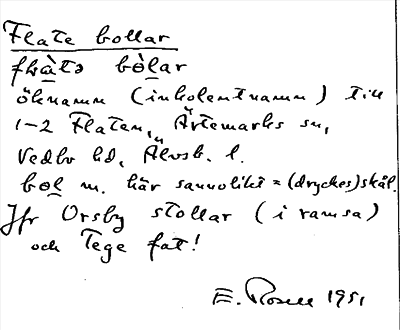 Flate bollar
flàtə bòlar
öknamn (inkolentnamn) till
1-2 Flaten, Ärtemarks sn,
Vedbo hd, Älvsb. l.
bol m. här sannolikt = (dryckes)skål.
Jfr Orsby stollar (i ramsa)
och Tege fat!
E. Rosell 1951